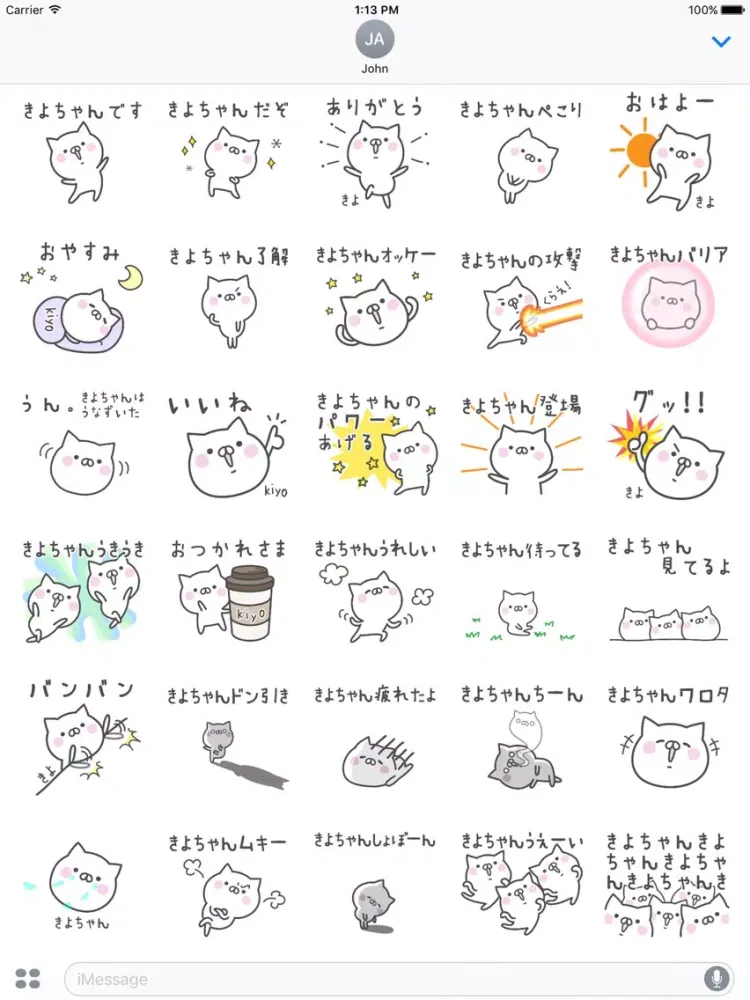 Carrier
1:13 PM
100%
JA
John
きよちゃんです
きよちゃんだぞ
ありがとう
きよ
きよちゃんぺこり
おはよー
きよ
おやすみ
kiyo
きよちゃん了解
きよちゃんオッケー
きよちゃんの攻撃
くらえ!
きよちゃんバリア
うん。
きよちゃんは
うなずいた
いいね
kiyo
きよちゃんの
パワー
あげる
きよちゃん登場
グッ!!
きよ
きよちゃんうきうき
おつかれさま
kiyo
きよちゃんうれしい
きよちゃん待ってる
きよちゃん
見てるよ
バンバン
きよ
きよちゃんドン引き
きよちゃん疲れたよ
きよちゃんちーん
きよちゃんワロタ
きよちゃん
きよちゃんムキー
きよちゃんしょぼーん
きよちゃんうぇーい
きよちゃんきよ
ちゃんきよちゃ
んきよちゃんき
iMessage